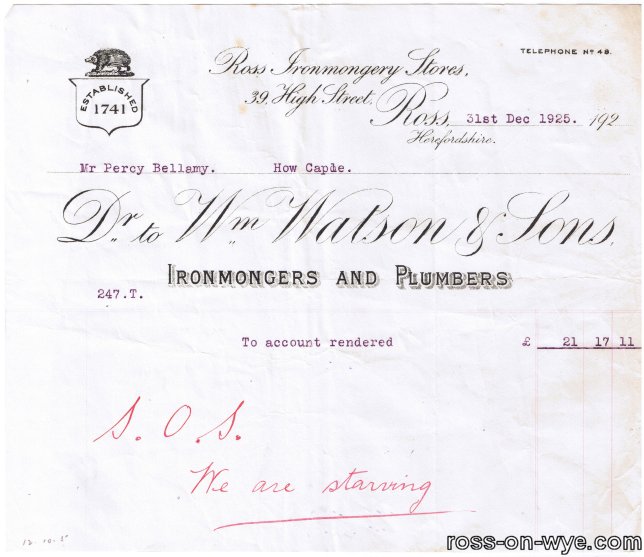 Ross Ironmongery Stores,
TELEPHONE Nº 48.
39, High Street,
ESTABLISHED
1741
Ross, 31st Dec 1925. 192
Herefordshire.
Mr Percy Bellamy. How Caple.
Dr. to Wm Watson & Sons,
IRONMONGERS AND PLUMBERS
247.T.
To account rendered £ 21 17 11
S. O. S.
We are starving
12-10-5
ross-on-wye.com